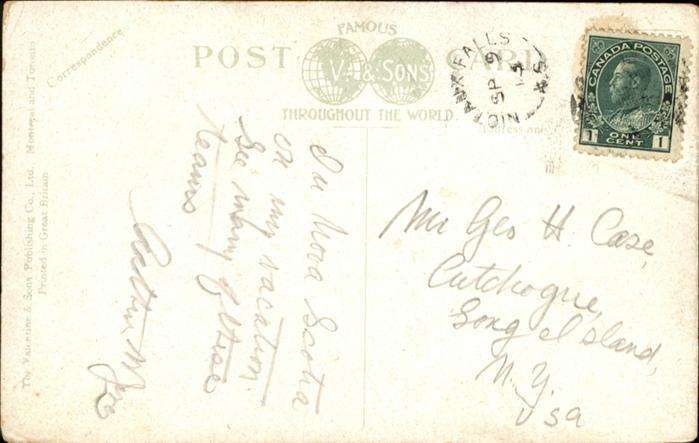 FAMOUS
POST CARD
V. & SONS
THROUGHOUT THE WORLD.
Correspondence
The Valentine & Sons Publishing Co., Ltd. Montreal and Toronto
Printed in Great Britain
NICTAUX FALLS
SP 9
15
N.S.
CANADA POSTAGE
1 ONE CENT 1
In Nova Scotia
on my vacation.
See many of these
teams
Mr Geo H Case,
Cutchogue,
Long Island,
N.Y.
USA